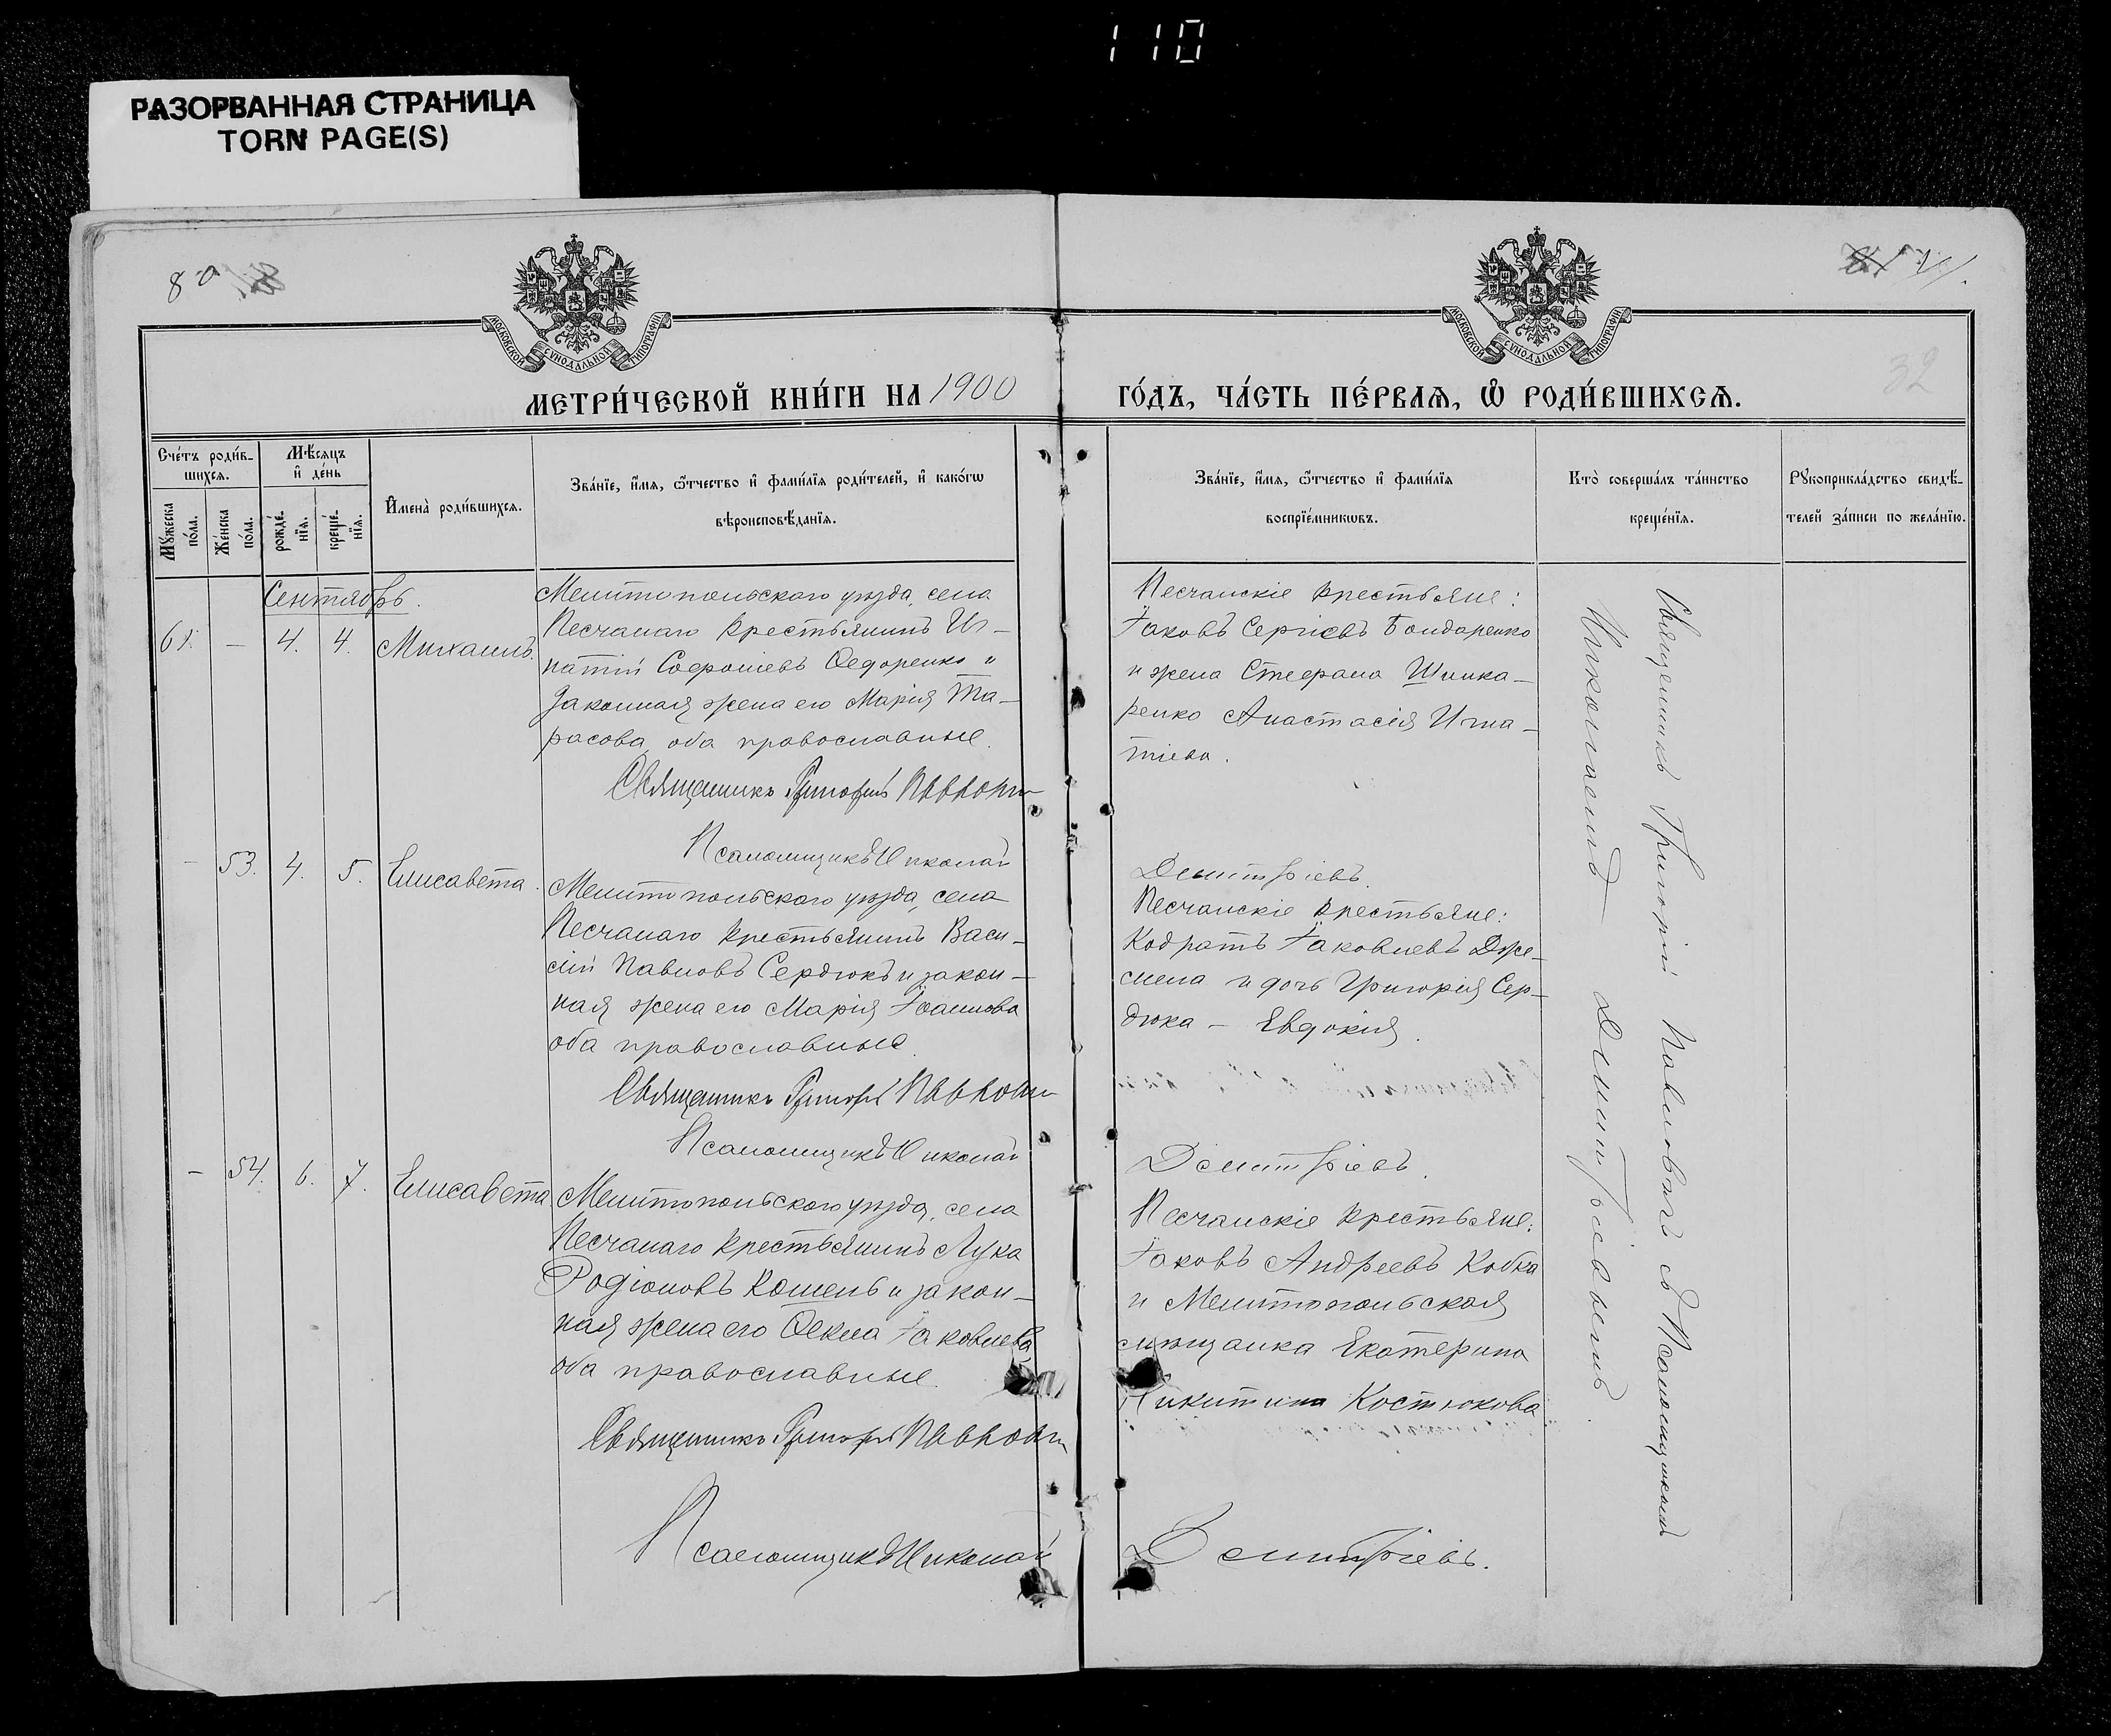 110
РАЗОРВАННАЯ СТРАНИЦА
TORN PAGE(S)
80
32
МОСКОВСКОЙ СѴНОДАЛЬНОЙ ТИПОГРАФІИ
МОСКОВСКОЙ СѴНОДАЛЬНОЙ ТИПОГРАФІИ
МЕТРИ́ЧЕСКОЙ КНИ́ГИ НА 1900
ГО́ДЪ, ЧА́СТЬ ПЕ́РВАѦ, Ѿ РОДИ́ВШИХСѦ.
Сче́тъ роди́в-
шихся.
Мѣ́сяцъ
и҆ де́нь
Мꙋ́жеска
по́ла.
Же́нска
по́ла.
рожде́-
нїя.
креще́-
нїя.
И҆мена̀ роди́вшихся.
Зва́нїе, и҆́мя, ѻ҆́тчество и҆ фами́лїя роди́телей, и҆ како́гѡ
вѣроисповѣ́данїя.
Зва́нїе, и҆́мя, ѻ҆́тчество и҆ фами́лїя
воспрїе́мникѡвъ.
Кто̀ соверша́лъ та́инство
креще́нїя.
Рꙋкоприкла́дство свидѣ́-
телей за́писи по жела́нїю.
Сентябрь.
61. — 4. 4. Михаилъ.
Мелитопольскаго уѣзда, села
Песчанаго крестьянинъ Иг-
натій Софроніевъ Ѳедоренко и
законная жена его Марія Та-
расова, оба православные.
Священникъ Григорій Павлович
Псаломщикъ Николай
Песчанскіе крестьяне:
Іаковъ Сергіевъ Бондаренко
и жена Стефана Шинка-
ренко Анастасія Игна-
тіева.
Димитріевъ.
— 53. 4. 5. Елисавета.
Мелитопольскаго уѣзда, села
Песчанаго крестьянинъ Васи-
лій Павловъ Сердюкъ и закон-
ная жена его Марія Іоаннова
оба православные.
Священникъ Григорій Павлович
Псаломщикъ Николай
Песчанскіе крестьяне:
Кодратъ Іаковлевъ Дже-
мела и дочь Григорія Сер-
дюка — Евдокія.
Димитріевъ.
— 54. 6. 7. Елисавета
Мелитопольскаго уѣзда, села
Песчанаго крестьянинъ Лука
Родіоновъ Кошель и закон-
ная жена его Ѳекла Іаковлева,
оба православные.
Священникъ Григорій Павлович
Псаломщикъ Николай
Песчанскіе крестьяне:
Іаковъ Андреевъ Кобка
и Мелитопольская
мѣщанка Екатерина
Никитина Костюкова
Димитріевъ.
Священникъ Григорій Павловичъ съ Псаломщикомъ
Николаемъ Димитріевымъ.